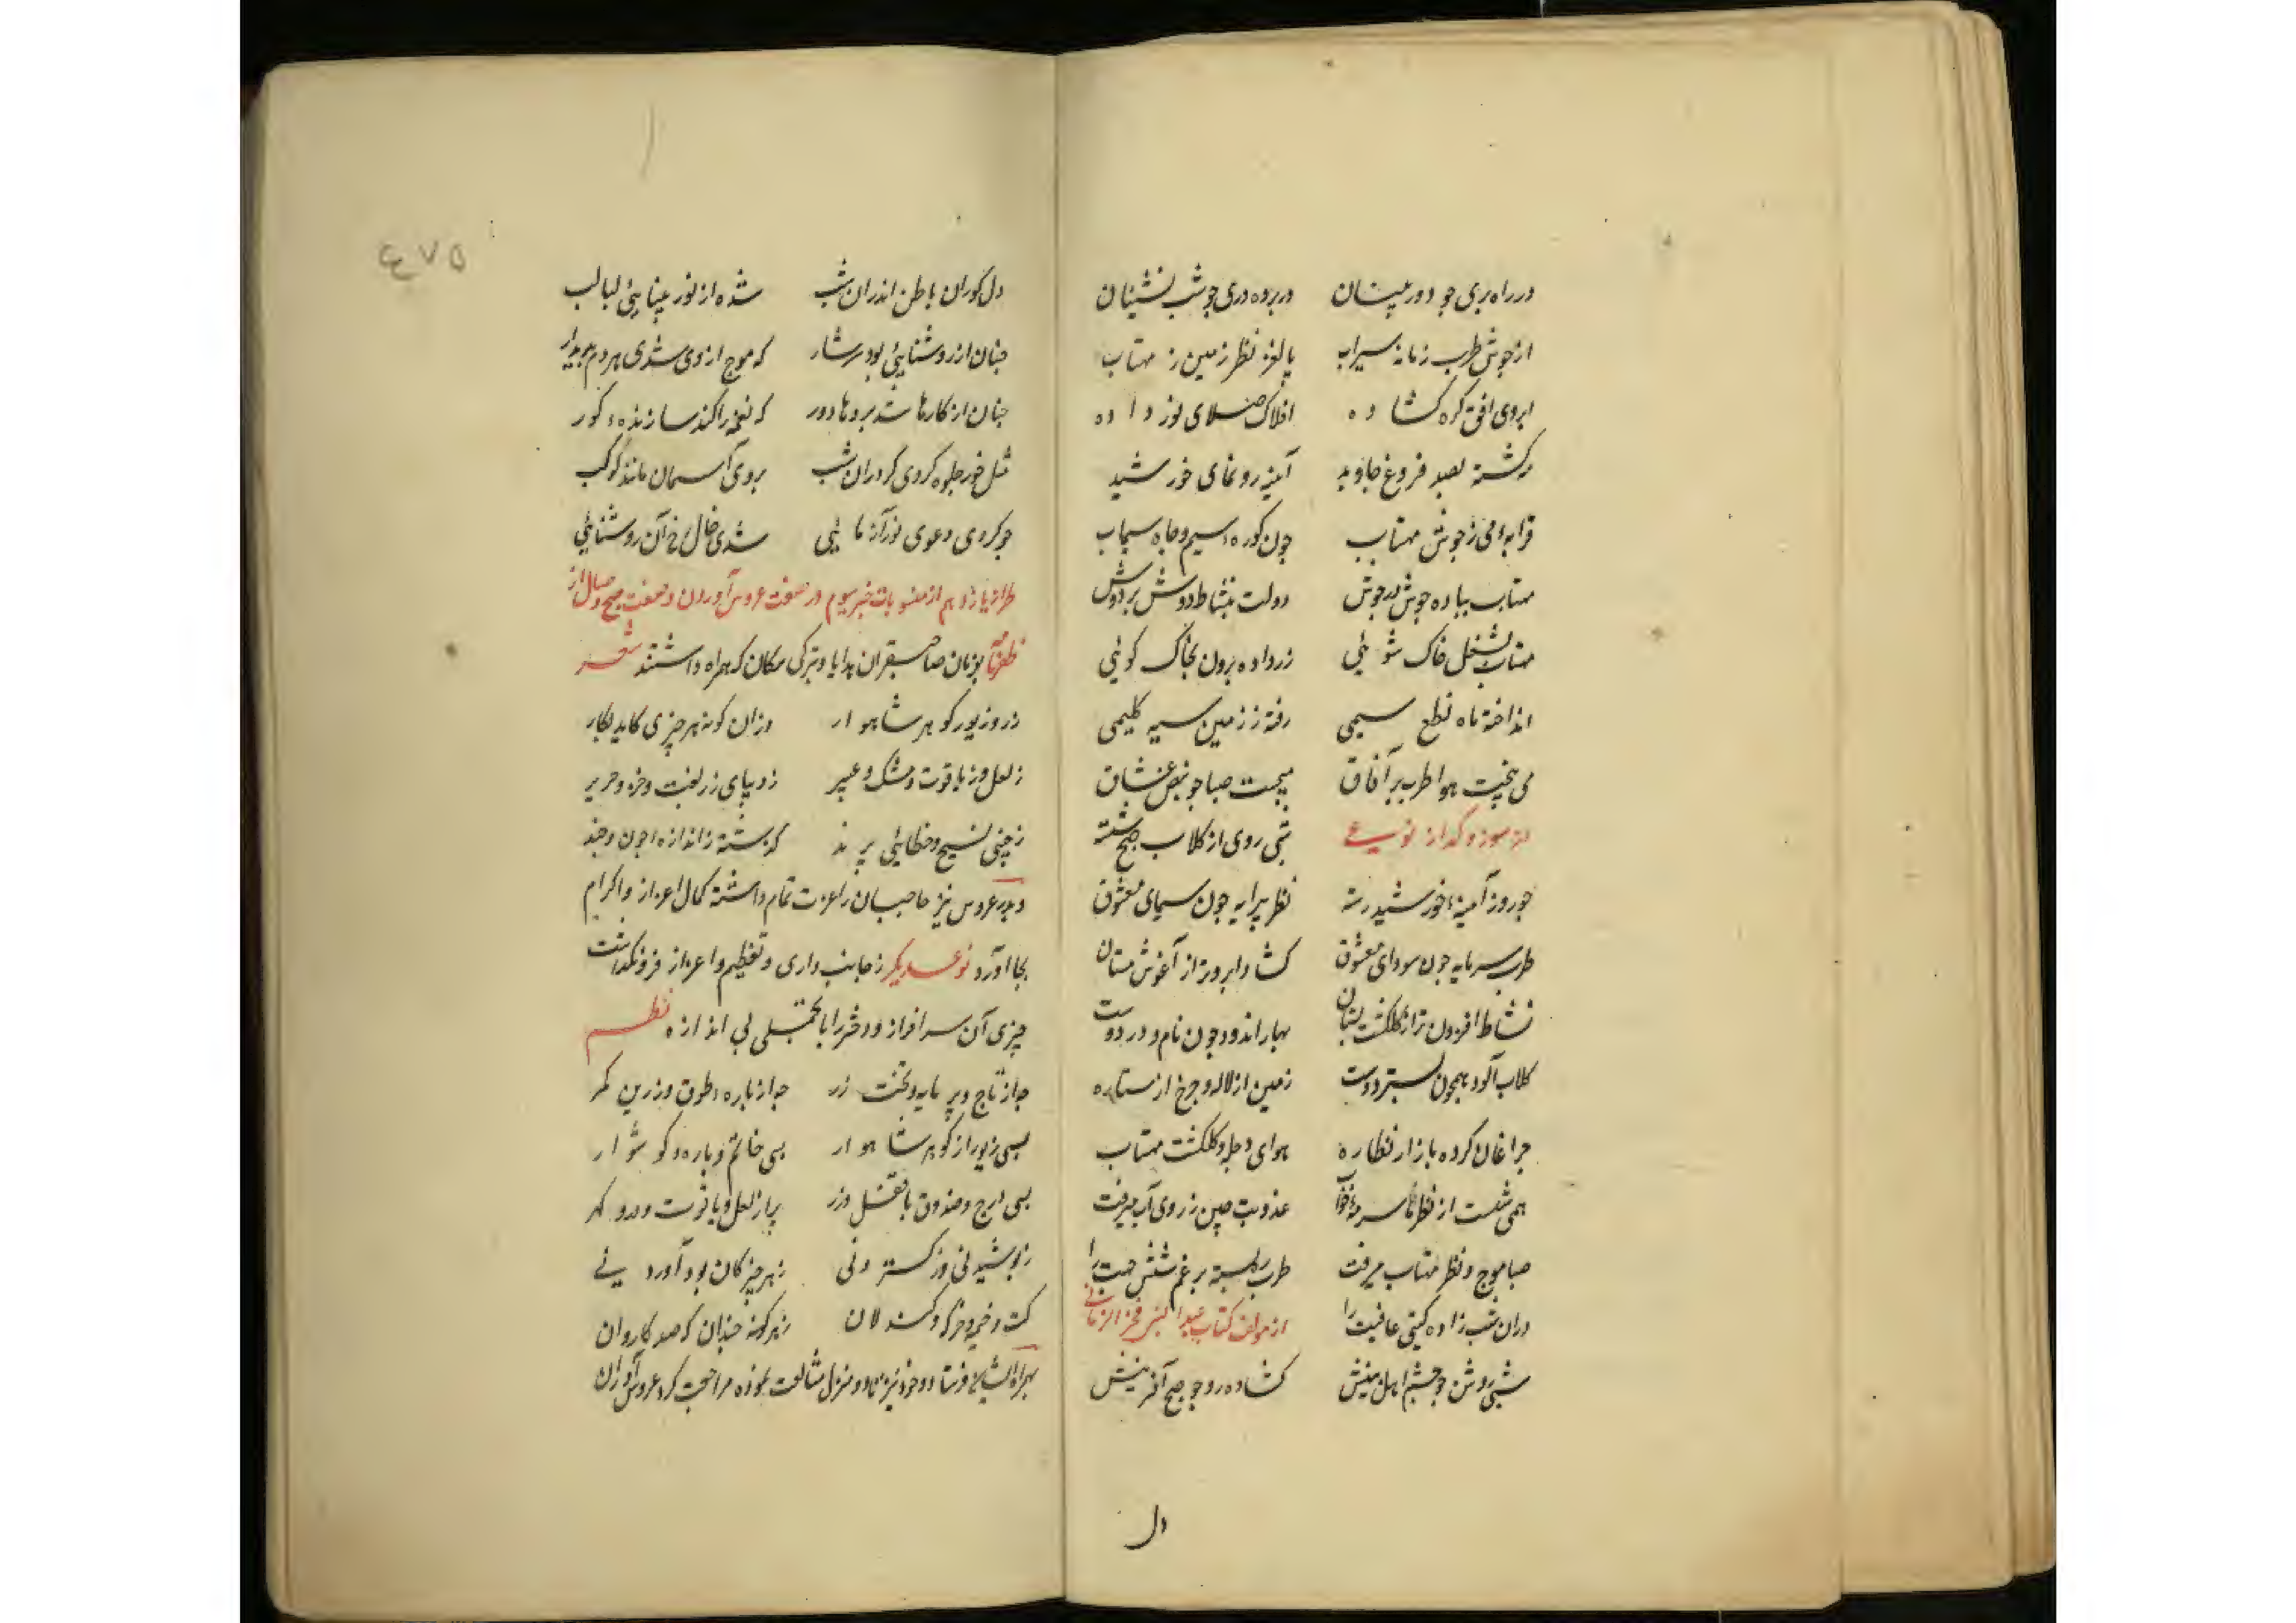 در راه بری چو دوربینان در پرده دری چو شب نشینان
از جوش طرب زمانه سیراب پالغز نظر زمین ز مهتاب
ابروی افق گره کشاده افلاک صلای نور داده
گشته بصد فروغ جاوید آینه رونمای خورشید
قرابهٔ می ز جوش مهتاب چون کورهٔ سیم و چاه سیماب
مهتاب بباده جوش در جوش دولت بنشاط دوش بر دوش
مهتاب بشغل خاک شوئی زر داده برون بخاک کوئی
انداخته ماه نطع سیمی رفته ز زمین سیه کلیمی
می بیخت هوا طرب بر آفاق میجست صبا چو نبض عشاق
از سوز و گداز نوعی شبی روی از کلاب صبح شسته
چو روز آمینهٔ خورشید رسته نظر پیرایه چون سیمای معشوق
طرب سرمایه چون سودای معشوق کشاد ابروتر از آغوش مستان
نشاط افزون تر از کلکشت بستان بهار اندود چون نام و در دوست
کلاب آلود همچون بستر دوست زمین از لاله و چرخ از ستاره
چراغان کرده بازار نظاره هوای دجله و کلکشت مهتاب
همی شست از نظرها سرمهٔ خواب عذوبت چین ز روی آب میرفت
صبا موج و نظر مهتاب میرفت طرب بر غم شش جهت را
دران شب زاده کیتی عافیت را از مولف کتاب عبدالنبی فخرالزمانی
شبی روشن چو چشم اهل بینش کشاده رو چو صبح آفرینش
دل
٤٧٥
دل کوران باطن اندران شب شده از نور بینایی لبالب
چنان از روشنایی بود سرشار که موج از وی شدی هر دم پدیدار
چنان از کارها شد پردها دور که نغمه را کند سازنده کور
مثل خور جلوه کردی کر دران شب بروی آسمان مانند کوکب
چو کردی دعوی نورآزمایی شدی خال رخ آن روشنایی
طراز یازدهم از منسوبات خبر سیوم در صفت عروس آوردن و صفت صبح وصال از
ظفرنامه بزمان صاحبقران هدایا و تبرکی مکان که همراه داشتند شعر
زر و زیور کوهر شاهوار وزان کونه هر چیزی کاید بکار
ز لعل و ز یاقوت و مشک و عبیر ز دیبای زربفت و خز و حریر
ز چینی نسیج و خطایی پرند که بسته ز اندازه چون و چند
و پدر عروس نیز حاجبان را عزت تمام داشته کمال اعزاز و اکرام
بجا آورد نوعدیکر ز جانب داری و تعظیم و اعزاز فرو نکذاشت
چیزی آن سرافراز و دختر را با تجملی بی اندازه نظم
چه از تاج و پیرایه و تخت زر چه از یاره و طوق و زرین کمر
بسی زیور از کوهر شاهوار بسی خاتم و یاره و کوشوار
بسی درج و صندوق با قفل زر پر از لعل و یاقوت و در و کهر
ز پوشیدنی و ز کستردنی ز هر چیز کان بود آوردنی
ز هر کونه چندان که صد کاروان
همراه ایشان فرستاد و خود نیز دو منزل مشایعت نموده مراجعت کرد عروس آوران